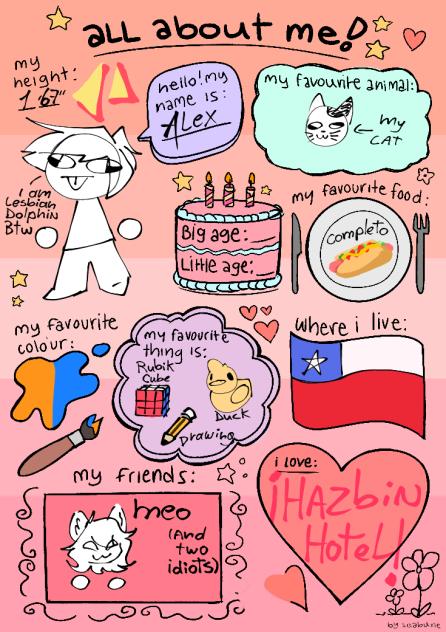 all about me!
my
height:
1'67"
hello! my
name is:
ALEX
my favourite animal:
my
CAT
I am
Lesbian
Dolphin
Btw
Big age:
Little age:
my favourite food:
completo
my favourite
colour:
my favourite
thing is:
Rubik
Cube
Duck
Drawing
where i live:
my friends:
meo
(And
two
idiots)
i love:
¡HAZbiN
HoteL!